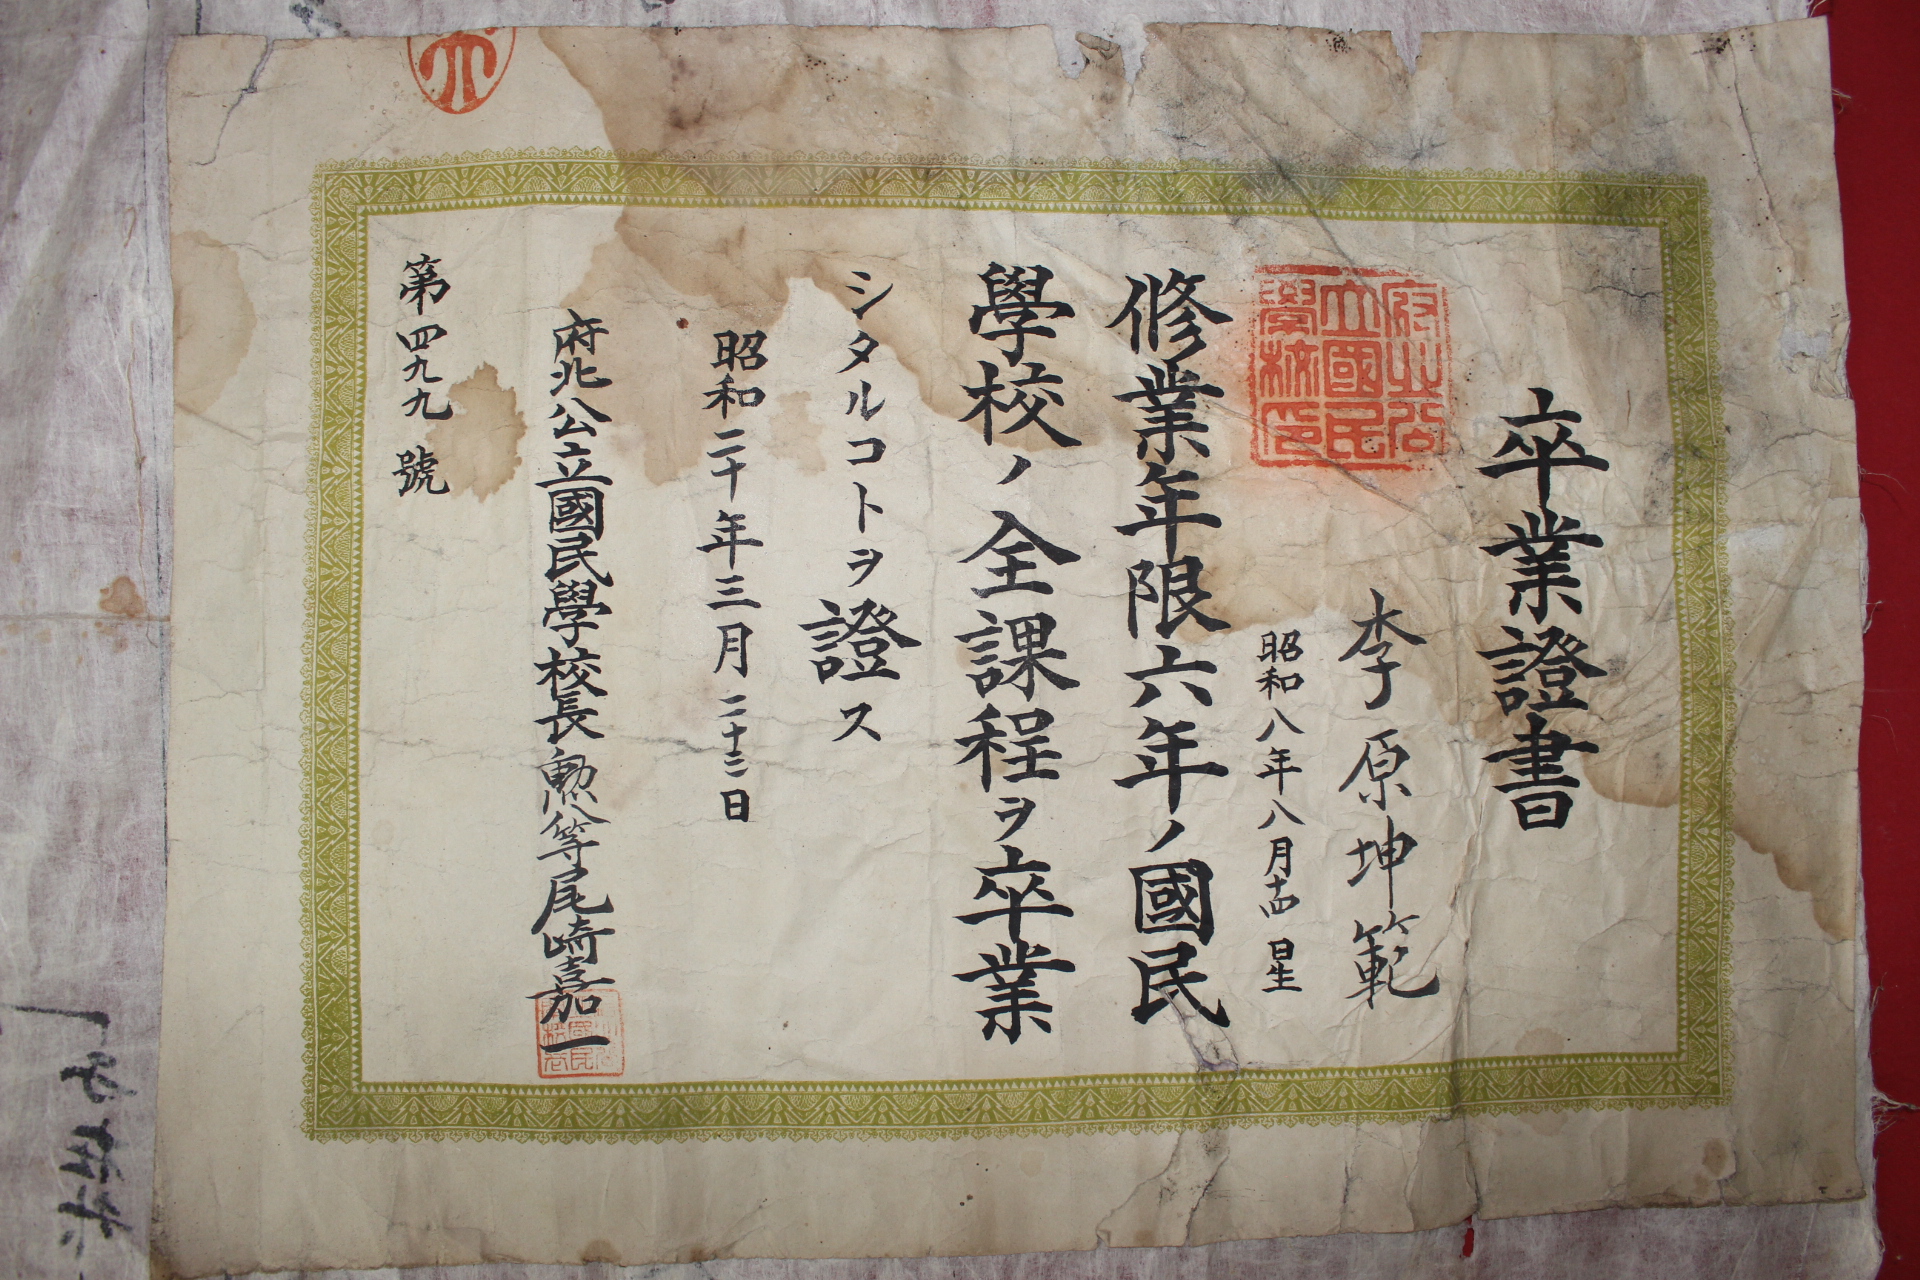 卒業證書
李原坤範
昭和八年八月十四日生
修業年限六年ノ國民
學校ノ全課程ヲ卒業
シタルコトヲ證ス
昭和二十年三月二十三日
府北公立國民學校長勲八等尾崎嘉一
第四九九號
府北公
立國民
學校印